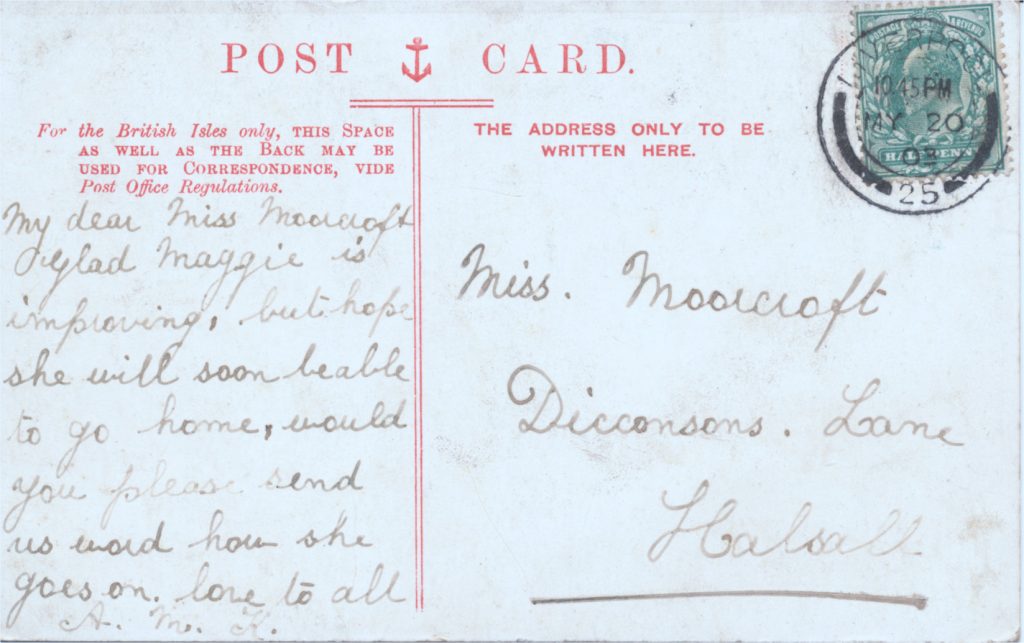 POST CARD.
For the British Isles only, THIS SPACE
AS WELL AS THE BACK MAY BE
USED FOR CORRESPONDENCE, VIDE
Post Office Regulations.
THE ADDRESS ONLY TO BE
WRITTEN HERE.
POSTAGE & REVENUE
HALFPENNY
LIVERPOOL
10.45 PM
MY 20
25
My dear Miss Moorcroft
Glad Maggie is
improving, but hope
she will soon be able
to go home, would
you please send
us word how she
goes on. love to all
A. M. K.
Miss. Moorcroft
Dicconsons. Lane
Halsall